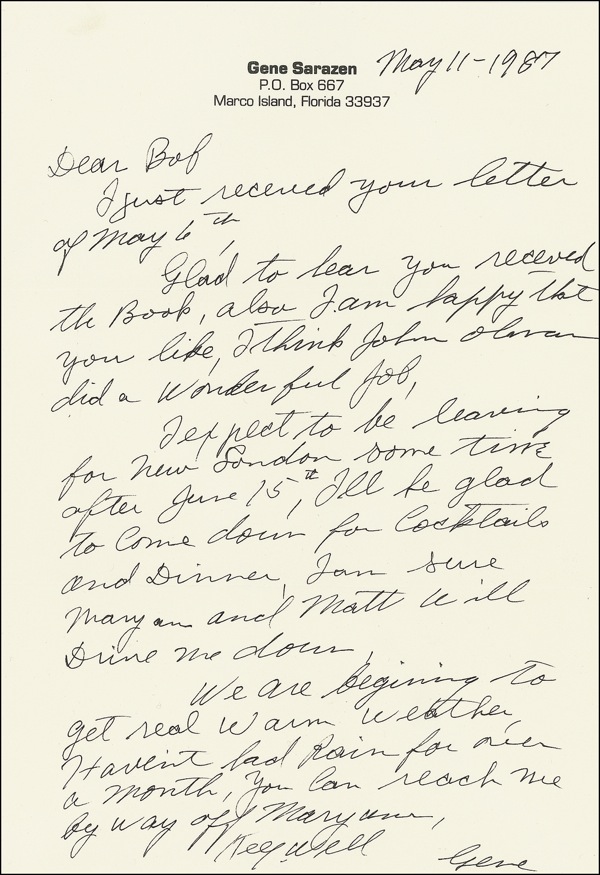 Gene Sarazen
May 11-1987
P.O. Box 667
Marco Island, Florida 33937
Dear Bob
I just receved your letter
of May 6th,
Glad to hear you receved
the Book, also I am happy that
you like, I think John olman
did a Wonderful Job,
I expect to be leaving
for New London some time
after June 15th, I'll be glad
to Come down for Cocktails
and Dinner, I am sure
Maryann and Matt Will
Drive me down,
We are begining to
get real Warm weather,
Haven't had Rain for over
a month, You Can reach me
by way off Maryann,
Keep well
Gene